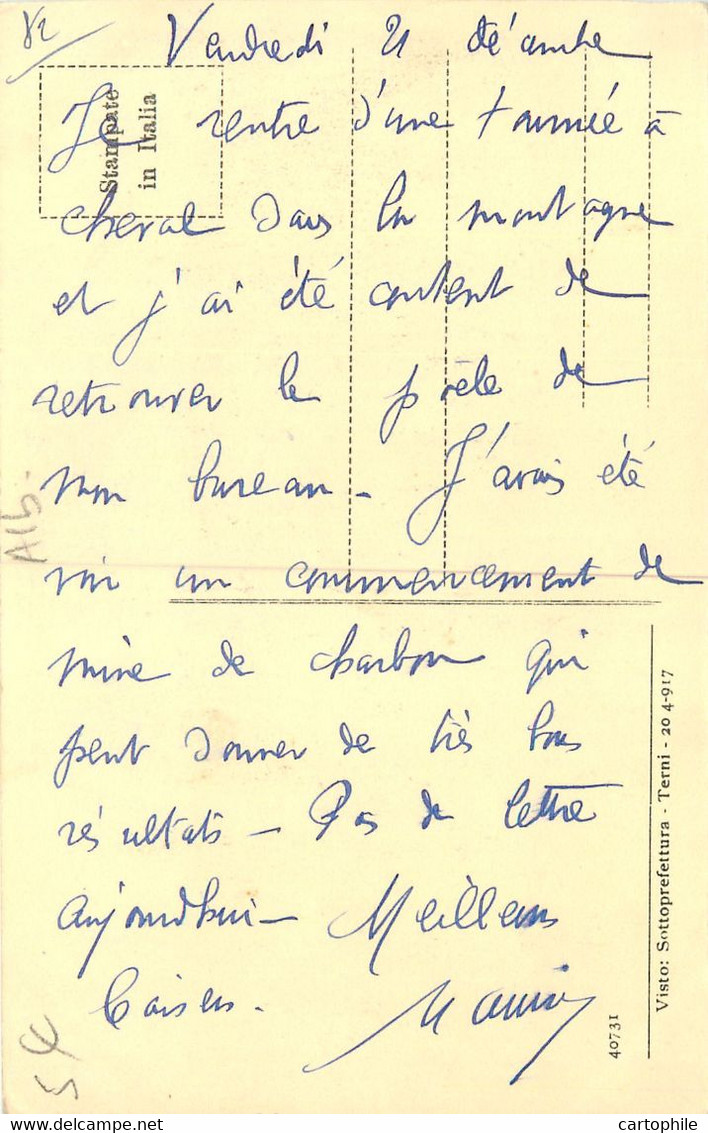 82
Vendredi 21 décembre
Stampate
in Italia
Je rentre d'une tournée à
cheval dans la montagne
et j'ai été content de
retrouver le poële de
mon bureau - J'avais été
voir un commencement de
mine de charbon qui
peut donner de très bons
résultats - Pas de lettre
aujourd'hui - Meilleurs
baisers.
Alb.
Visto: Sottoprefettura - Terni - 20 4-917
40731